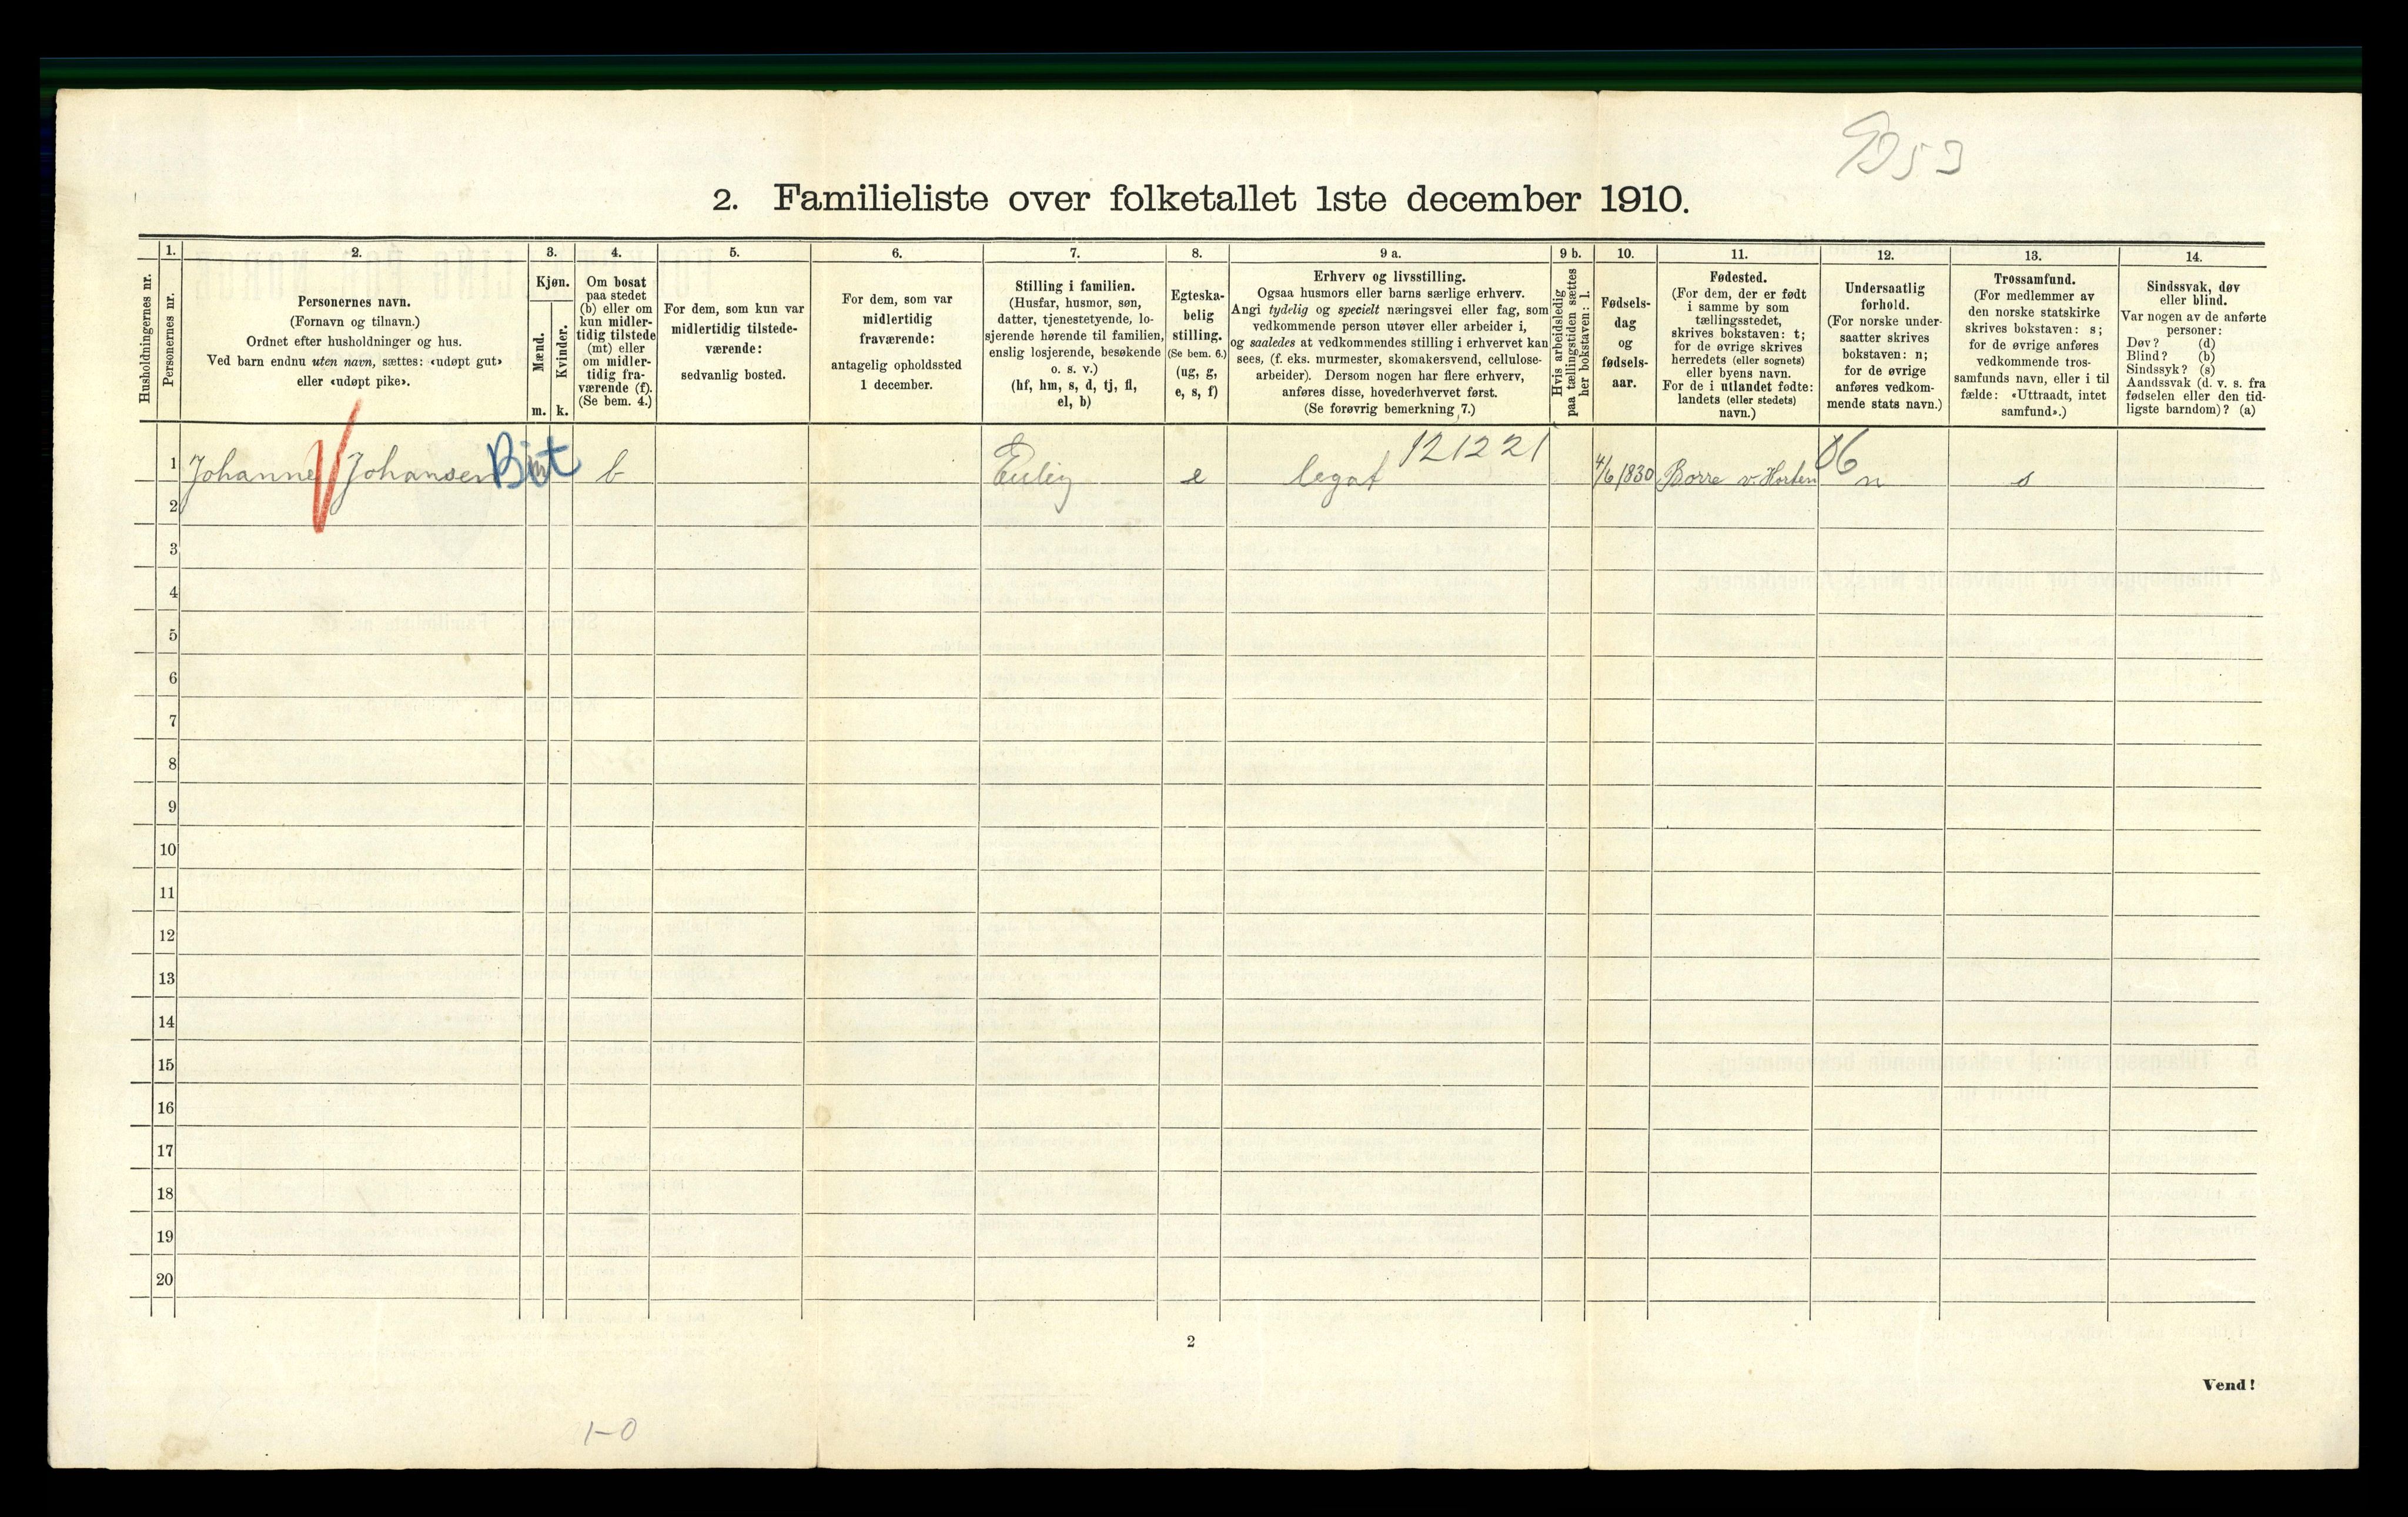 2. Familieliste over folketallet 1ste december 1910.
1.
2.
3.
4.
5.
6.
7.
8.
9 a.
9 b.
10.
11.
12.
13.
14.
Husholdningernes nr.
Personernes nr.
Personernes navn.
(Fornavn og tilnavn.)
Ordnet efter husholdninger og hus.
Ved barn endnu uten navn, sættes: «udøpt gut»
eller «udøpt pike».
Kjøn.
Mænd.
Kvinder.
m.
k.
Om bosat
paa stedet
(b) eller om
kun midler-
tidig tilstede
(mt) eller
om midler-
tidig fra-
værende (f).
(Se bem. 4.)
For dem, som kun var
midlertidig tilstede-
værende:
sedvanlig bosted.
For dem, som var
midlertidig
fraværende:
antagelig opholdssted
1 december.
Stilling i familien.
(Husfar, husmor, søn,
datter, tjenestetyende, lo-
sjerende hørende til familien,
enslig losjerende, besøkende
o. s. v.)
(hf, hm, s, d, tj, fl,
el, b)
Egteska-
belig
stilling.
(Se bem. 6.)
(ug, g,
e, s, f)
Erhverv og livsstilling.
Ogsaa husmors eller barns særlige erhverv.
Angi tydelig og specielt næringsvei eller fag, som
vedkommende person utøver eller arbeider i,
og saaledes at vedkommendes stilling i erhvervet kan
sees, (f. eks. murmester, skomakersvend, cellulose-
arbeider). Dersom nogen har flere erhverv,
anføres disse, hovederhvervet først.
(Se forøvrig bemerkning 7.)
Hvis arbeidsledig
paa tællingstiden sættes
her bokstaven: l.
Fødsels-
dag
og
fødsels-
aar.
Fødested.
(For dem, der er født
i samme by som
tællingsstedet,
skrives bokstaven: t;
for de øvrige skrives
herredets (eller sognets)
eller byens navn.
For de i utlandet fødte:
landets (eller stedets)
navn.)
Undersaatlig
forhold.
(For norske under-
saatter skrives
bokstaven: n;
for de øvrige
anføres vedkom-
mende stats navn.)
Trossamfund.
(For medlemmer av
den norske statskirke
skrives bokstaven: s;
for de øvrige anføres
vedkommende tros-
samfunds navn, eller i til
fælde: «Uttraadt, intet
samfund».)
Sindssvak, døv
eller blind.
Var nogen av de anførte
personer:
Døv? (d)
Blind? (b)
Sindssyk? (s)
Aandssvak (d. v. s. fra
fødselen eller den tid-
ligste barndom)? (a)
121221
06
1 Johanne Johansen b e legat 4/6 1830 Borre v. Horten n s
2
3
4
5
6
7
8
9
10
11
12
13
14
15
16
17
18
19
20
2
Vend!
1-0